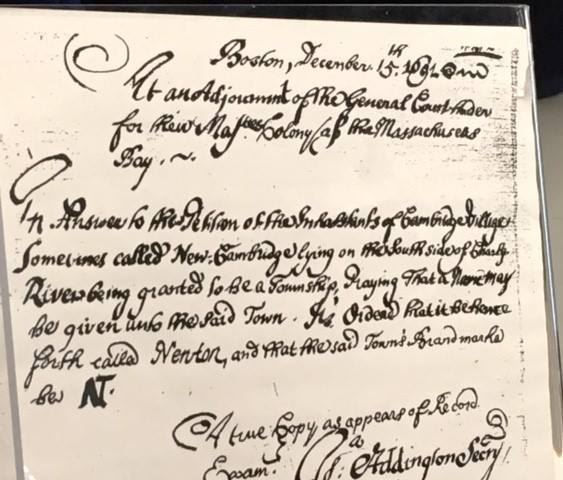 Boston, December. 15.th 1691.
At an Adjournmt of the General Court held
for their Majties Colony of the Massachusets
Bay. ~.
In Answer to the Petition of the Inhabitants of Cambridge Village
Sometimes called New-Cambridge lying on the South side of Charls
River being granted to be a Township, Praying That a Name may
be given unto the said Town. It's Ordered that it be hence
forth called Newton, and that the said Town's Brand marke
be NT.
A true Copy, as appears of Record.
Exam:
Js: Addington Secry.